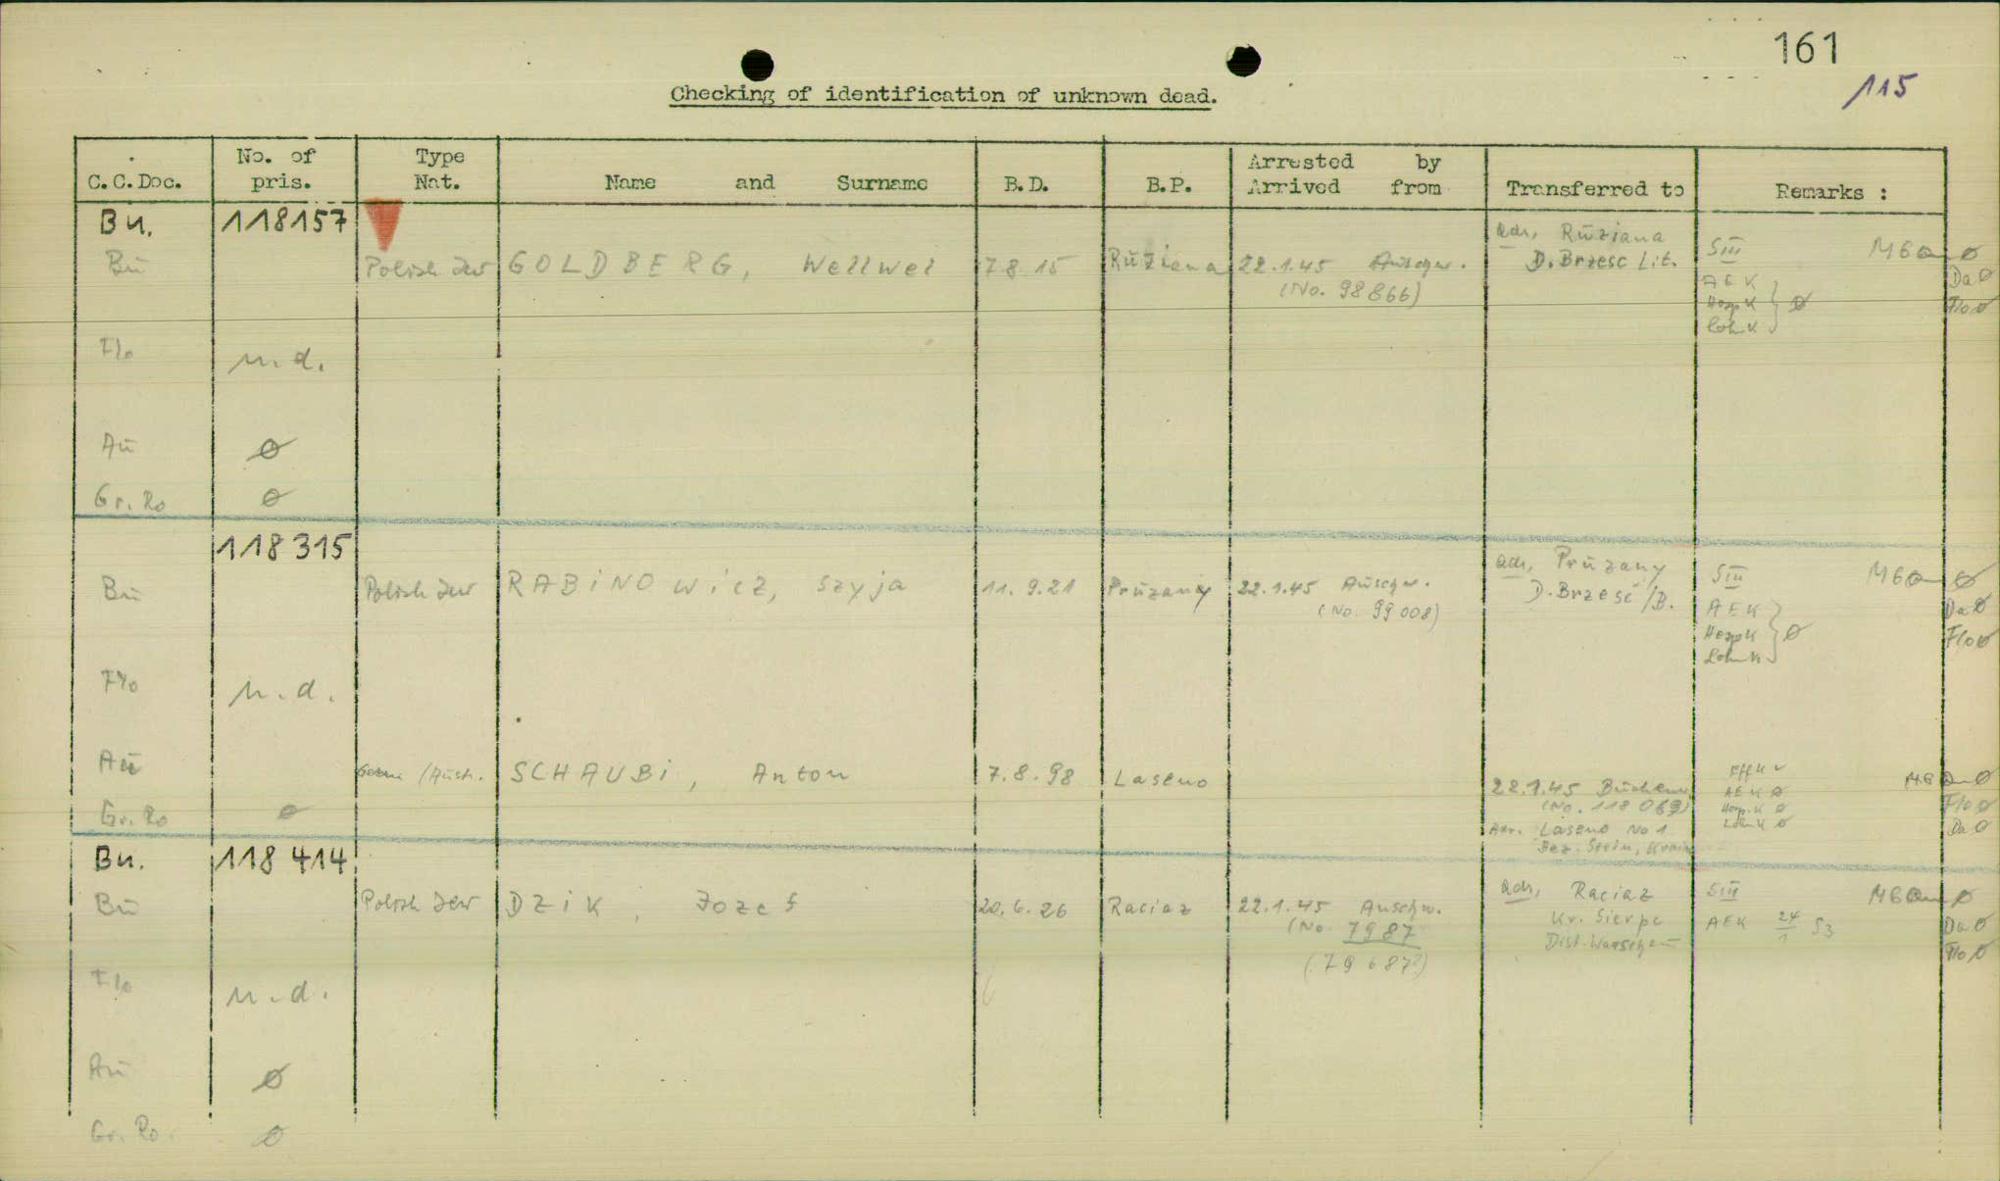 161
115
Checking of identification of unknown dead.
C.C.Doc. No. of pris. Type Nat. Name and Surname B.D. B.P. Arrested by Arrived from Transferred to Remarks :
Bu. 118157
Bū Polish Jew GOLDBERG, Wellwel 7.8.15 Rūziana 22.1.45 Auschw. (No. 98866)
adr. Rūziana
D. Brzesc Lit.
SIII
AEK
Hosp K
Loh K
Ø
Da Ø
Flo Ø
Flo n.d.
Aū Ø
Gr. Ro Ø
118315
Bū Polish Jew RABiNOwicz, Szyja 11.9.21 Prūzany 22.1.45 Aūschw.
(No. 99008)
adr. Prūzany
D. Brzesć/B.
SIII
AEK
Hosp K
Loh K
Ø
Da Ø
Flo Ø
Flo n.d.
Aū (Austr. SCHAUBi, Anton 7.8.98 Laseno
22.1.45
(No. 118069)
Adr. Laseno No 1
Bez. Stein, Krain
AEK Ø
Hosp. K Ø
Loh K Ø
Flo Ø
Da Ø
Gr. Ro Ø
Bu. 118414
Bū Polish Jew DZiK, Jozef 20.6.26 Raciaz 22.1.45 Auschw.
(No. 7987
(79687?)
adr. Raciaz
Kr. Sierpc
Dist. Warschau
SIII
AEK 24/1 53
Da Ø
Flo Ø
Flo n.d.
Aū Ø
Gr. Ro. Ø